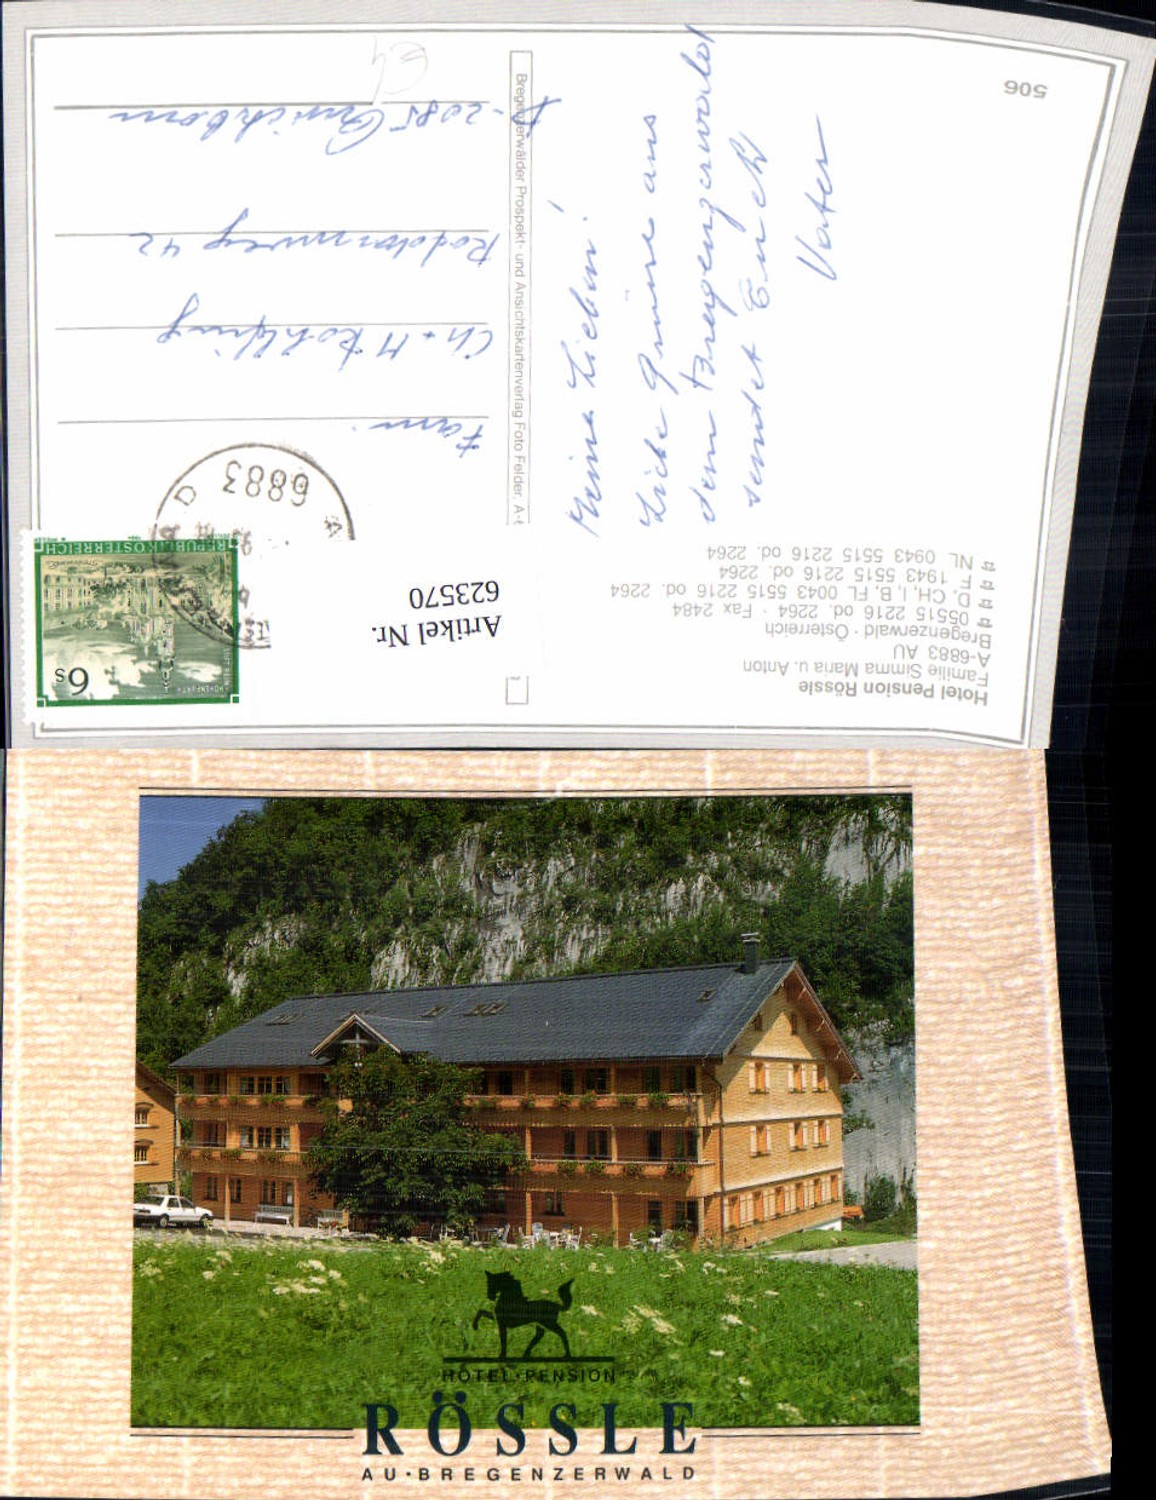 506
Meine Lieben!
Liebe Grüsse aus
dem Bregenzerwald
sendet Euch
Vater
Bregenzerwälder Prospekt- und Ansichtskartenverlag Foto Felder, A-6
Fam.
Ch + M
42
D-2085 Quickborn
6883
REPUBLIK ÖSTERREICH
STIFT REIN-
HOHENFURTH
6s
Artikel Nr.
623570
Hotel Pension Rössle
Familie Simma Maria u. Anton
A-6883 AU
Bregenzerwald · Österreich
05515 2216 od. 2264 · Fax 2484
D, CH, I, B, FL 0043 5515 2216 od. 2264
F 1943 5515 2216 od. 2264
NL 0943 5515 2216 od. 2264
HOTEL·PENSION
RÖSSLE
AU·BREGENZERWALD